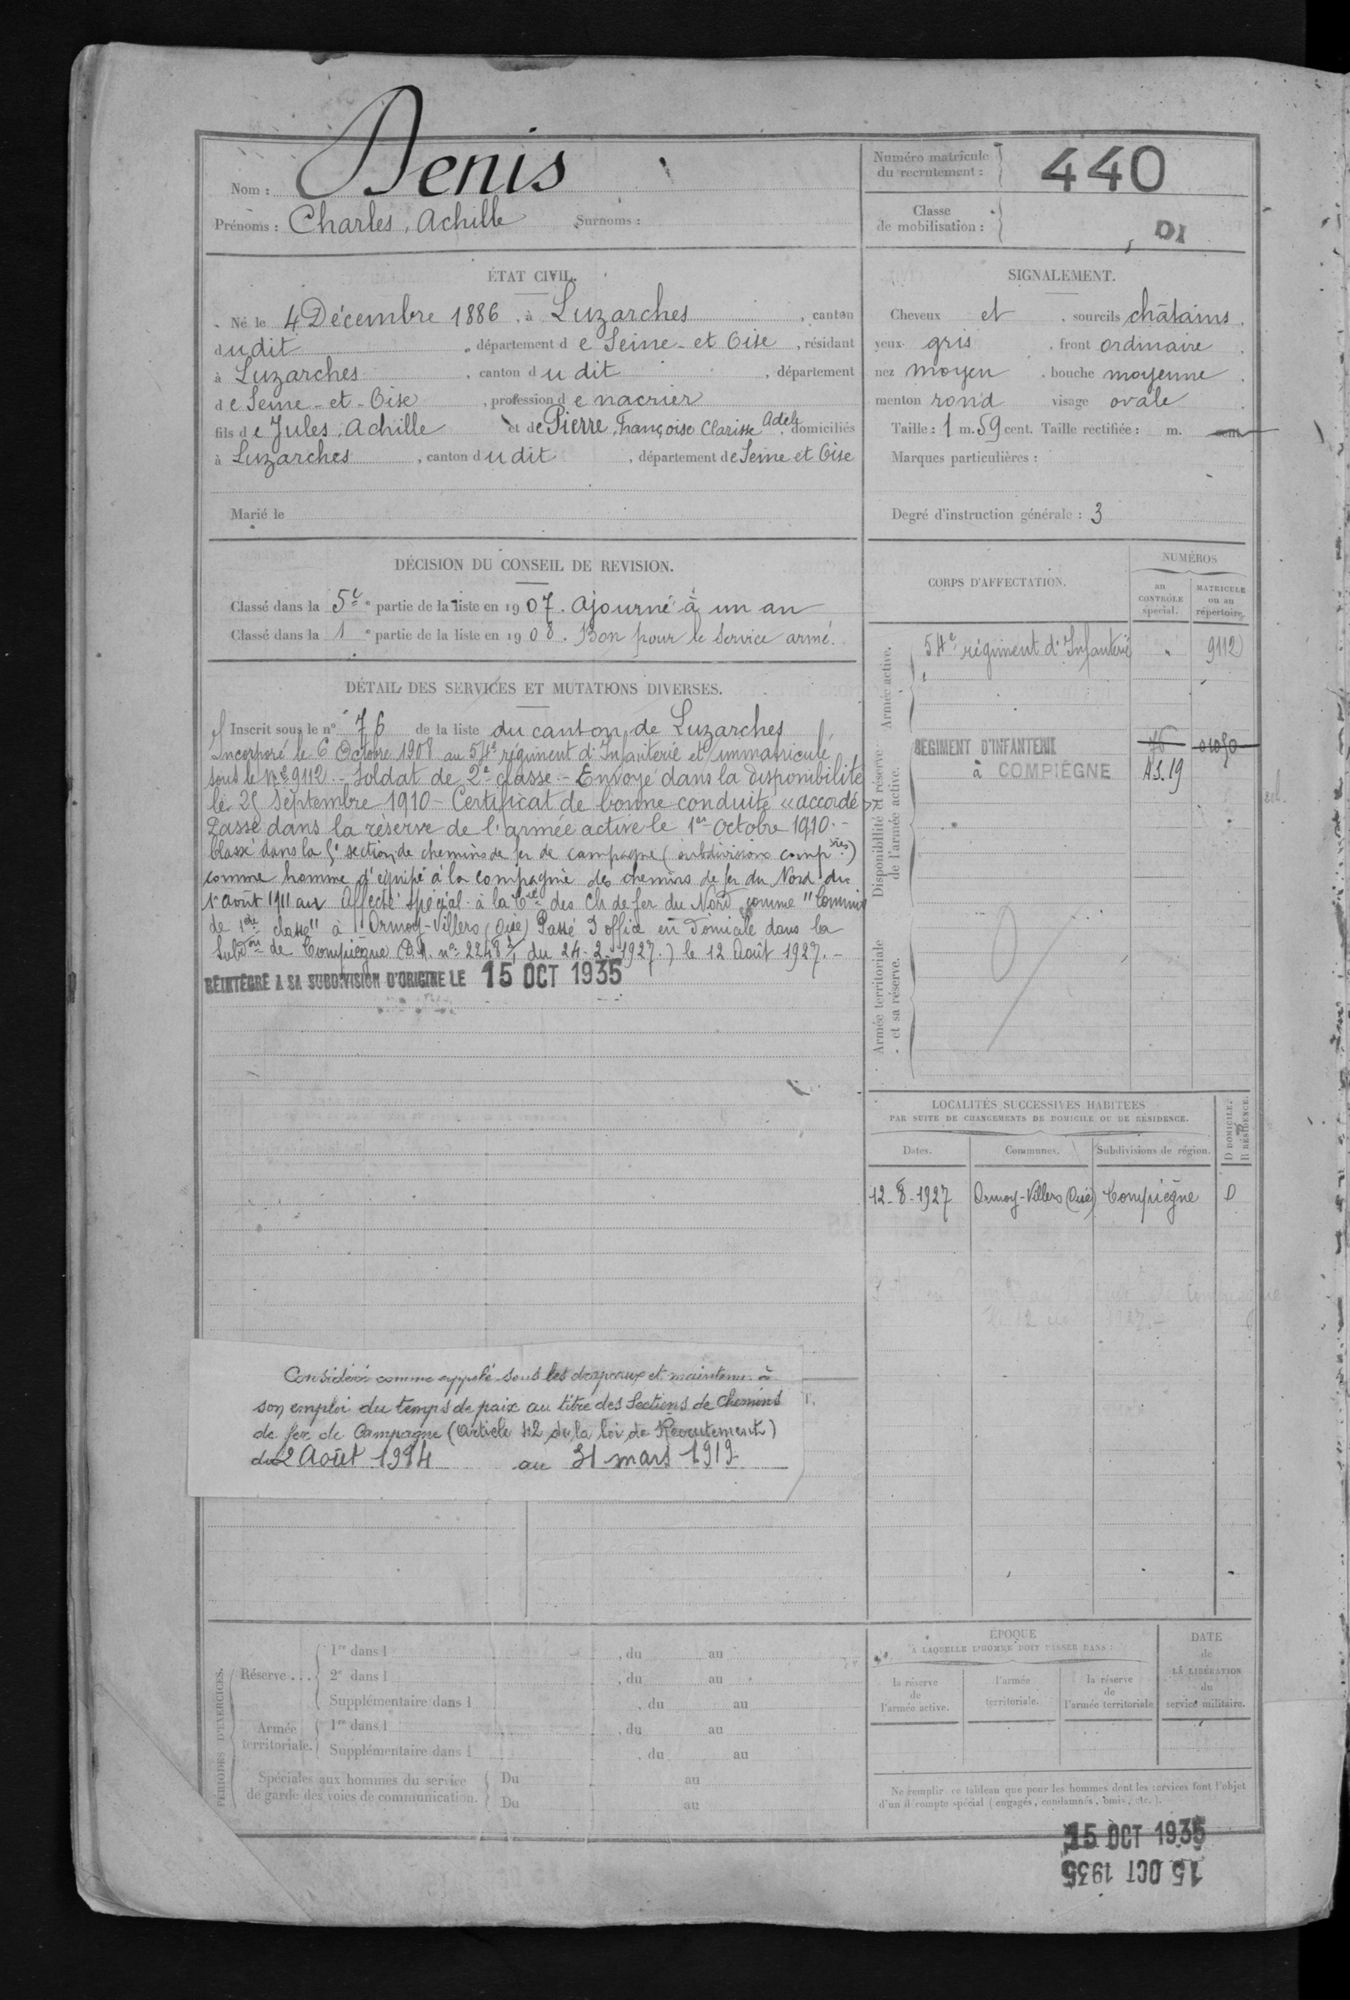 Nom : Denis
Prénoms : Charles, Achille Surnoms :
Numéro matricule du recrutement : 440
Classe de mobilisation :
DI
ÉTAT CIVIL.
Né le 4 Décembre 1886, à Luzarches, canton
dudit, département de Seine-et-Oise, résidant
à Luzarches, canton dudit, département
de Seine-et-Oise, profession de nacrier
fils de Jules, Achille et de Pierre, Françoise Clarisse Adèle domiciliés
à Luzarches, canton dudit, département de Seine et Oise
Marié le
SIGNALEMENT.
Cheveux et sourcils châtains,
yeux gris, front ordinaire,
nez moyen, bouche moyenne,
menton rond visage ovale
Taille : 1 m. 59 cent. Taille rectifiée : m. cent
Marques particulières :
Degré d'instruction générale : 3
DÉCISION DU CONSEIL DE REVISION.
Classé dans la 5e partie de la liste en 1907. ajourné à un an
Classé dans la 1e partie de la liste en 1908. Bon pour le service armé.
DÉTAIL DES SERVICES ET MUTATIONS DIVERSES.
Inscrit sous le n° 76 de la liste du canton de Luzarches
Incorporé le 6 Octobre 1908 au 54e régiment d'Infanterie et immatriculé
sous le No 9112.- Soldat de 2e classe.- Envoyé dans la disponibilité
le 25 Septembre 1910 - Certificat de bonne conduite « accordé »
Passé dans la réserve de l'armée active le 1er Octobre 1910.-
Classé dans la 5e section de chemins de fer de campagne (subdivisions compres)
comme homme d'équipe à la compagnie des chemins de fer du Nord du
1er août 1911 au Affecté spécial à la Cie des Ch de fer du Nord comme "Commis
de 1ère classe" à Ormoy-Villers (Oise) Passé d'office en domicile dans la
Subdon de Compiègne (D.M. no 2248 du 24-2-1927) le 12 Août 1927.-
RÉINTÉGRÉ A SA SUBDIVISION D'ORIGINE LE 15 OCT 1935
CORPS D'AFFECTATION.
NUMÉROS
au CONTRÔLE spécial.
MATRICULE ou au répertoire.
Armée active.
54e régiment d'Infanterie " 9112
Disponibilité et réserve de l'armée active.
REGIMENT D'INFANTERIE
à COMPIÈGNE
AS.19
Armée territoriale et sa réserve.
LOCALITÉS SUCCESSIVES HABITÉES
PAR SUITE DE CHANGEMENTS DE DOMICILE OU DE RÉSIDENCE.
Dates. Communes. Subdivisions de région. D DOMICILE. R RÉSIDENCE.
12-8-1927 Ormoy-Villers (Oise) Compiègne D
Considéré comme appelé sous les drapeaux et maintenu à
son emploi du temps de paix au titre des Sections de Chemins
de fer de Campagne (Article 42 de la loi de Recrutement)
du 2 Août 1914 au 31 mars 1919
PÉRIODES D'EXERCICES.
Réserve...
1re dans l , du au
2e dans l , du au
Supplémentaire dans l , du au
Armée territoriale.
1re dans l , du au
Supplémentaire dans l , du au
Spéciales aux hommes du service
de garde des voies de communication.
Du au
Du au
ÉPOQUE
A LAQUELLE L'HOMME DOIT PASSER DANS :
la réserve de l'armée active.
l'armée territoriale.
la réserve de l'armée territoriale
DATE de LA LIBÉRATION du service militaire.
Ne remplir ce tableau que pour les hommes dont les services font l'objet
d'un décompte spécial (engagés, condamnés, omis, etc.).
15 OCT 1935
15 OCT 1935